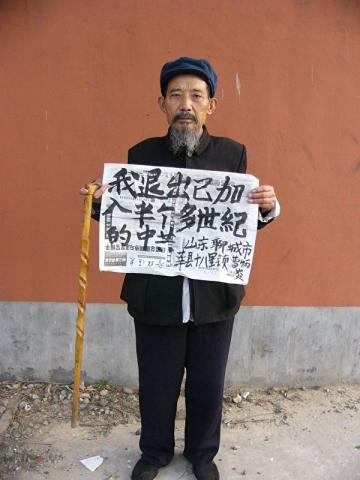 我退出已加
入半个多世紀
的中共
山东聊城市
莘县十八里